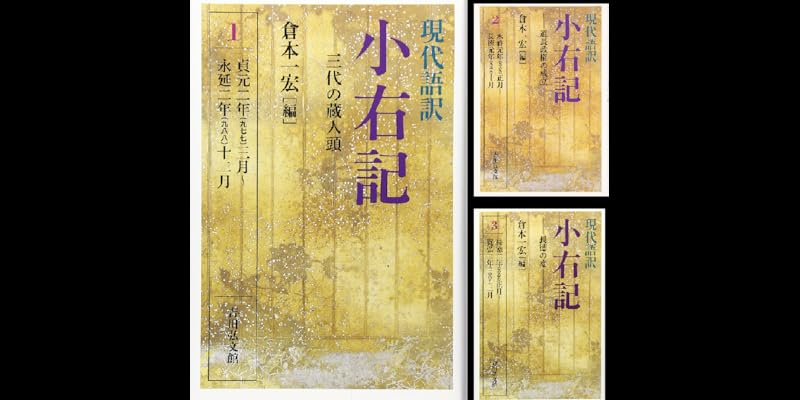 現代語訳
小右記
三代の蔵人頭
倉本一宏[編]
1
貞元二年(九七七)三月~
永延二年(九八八)十二月
吉川弘文館
現代語訳
小右記
道長政権の成立
倉本一宏[編]
2
現代語訳
小右記
長徳の変
倉本一宏[編]
3